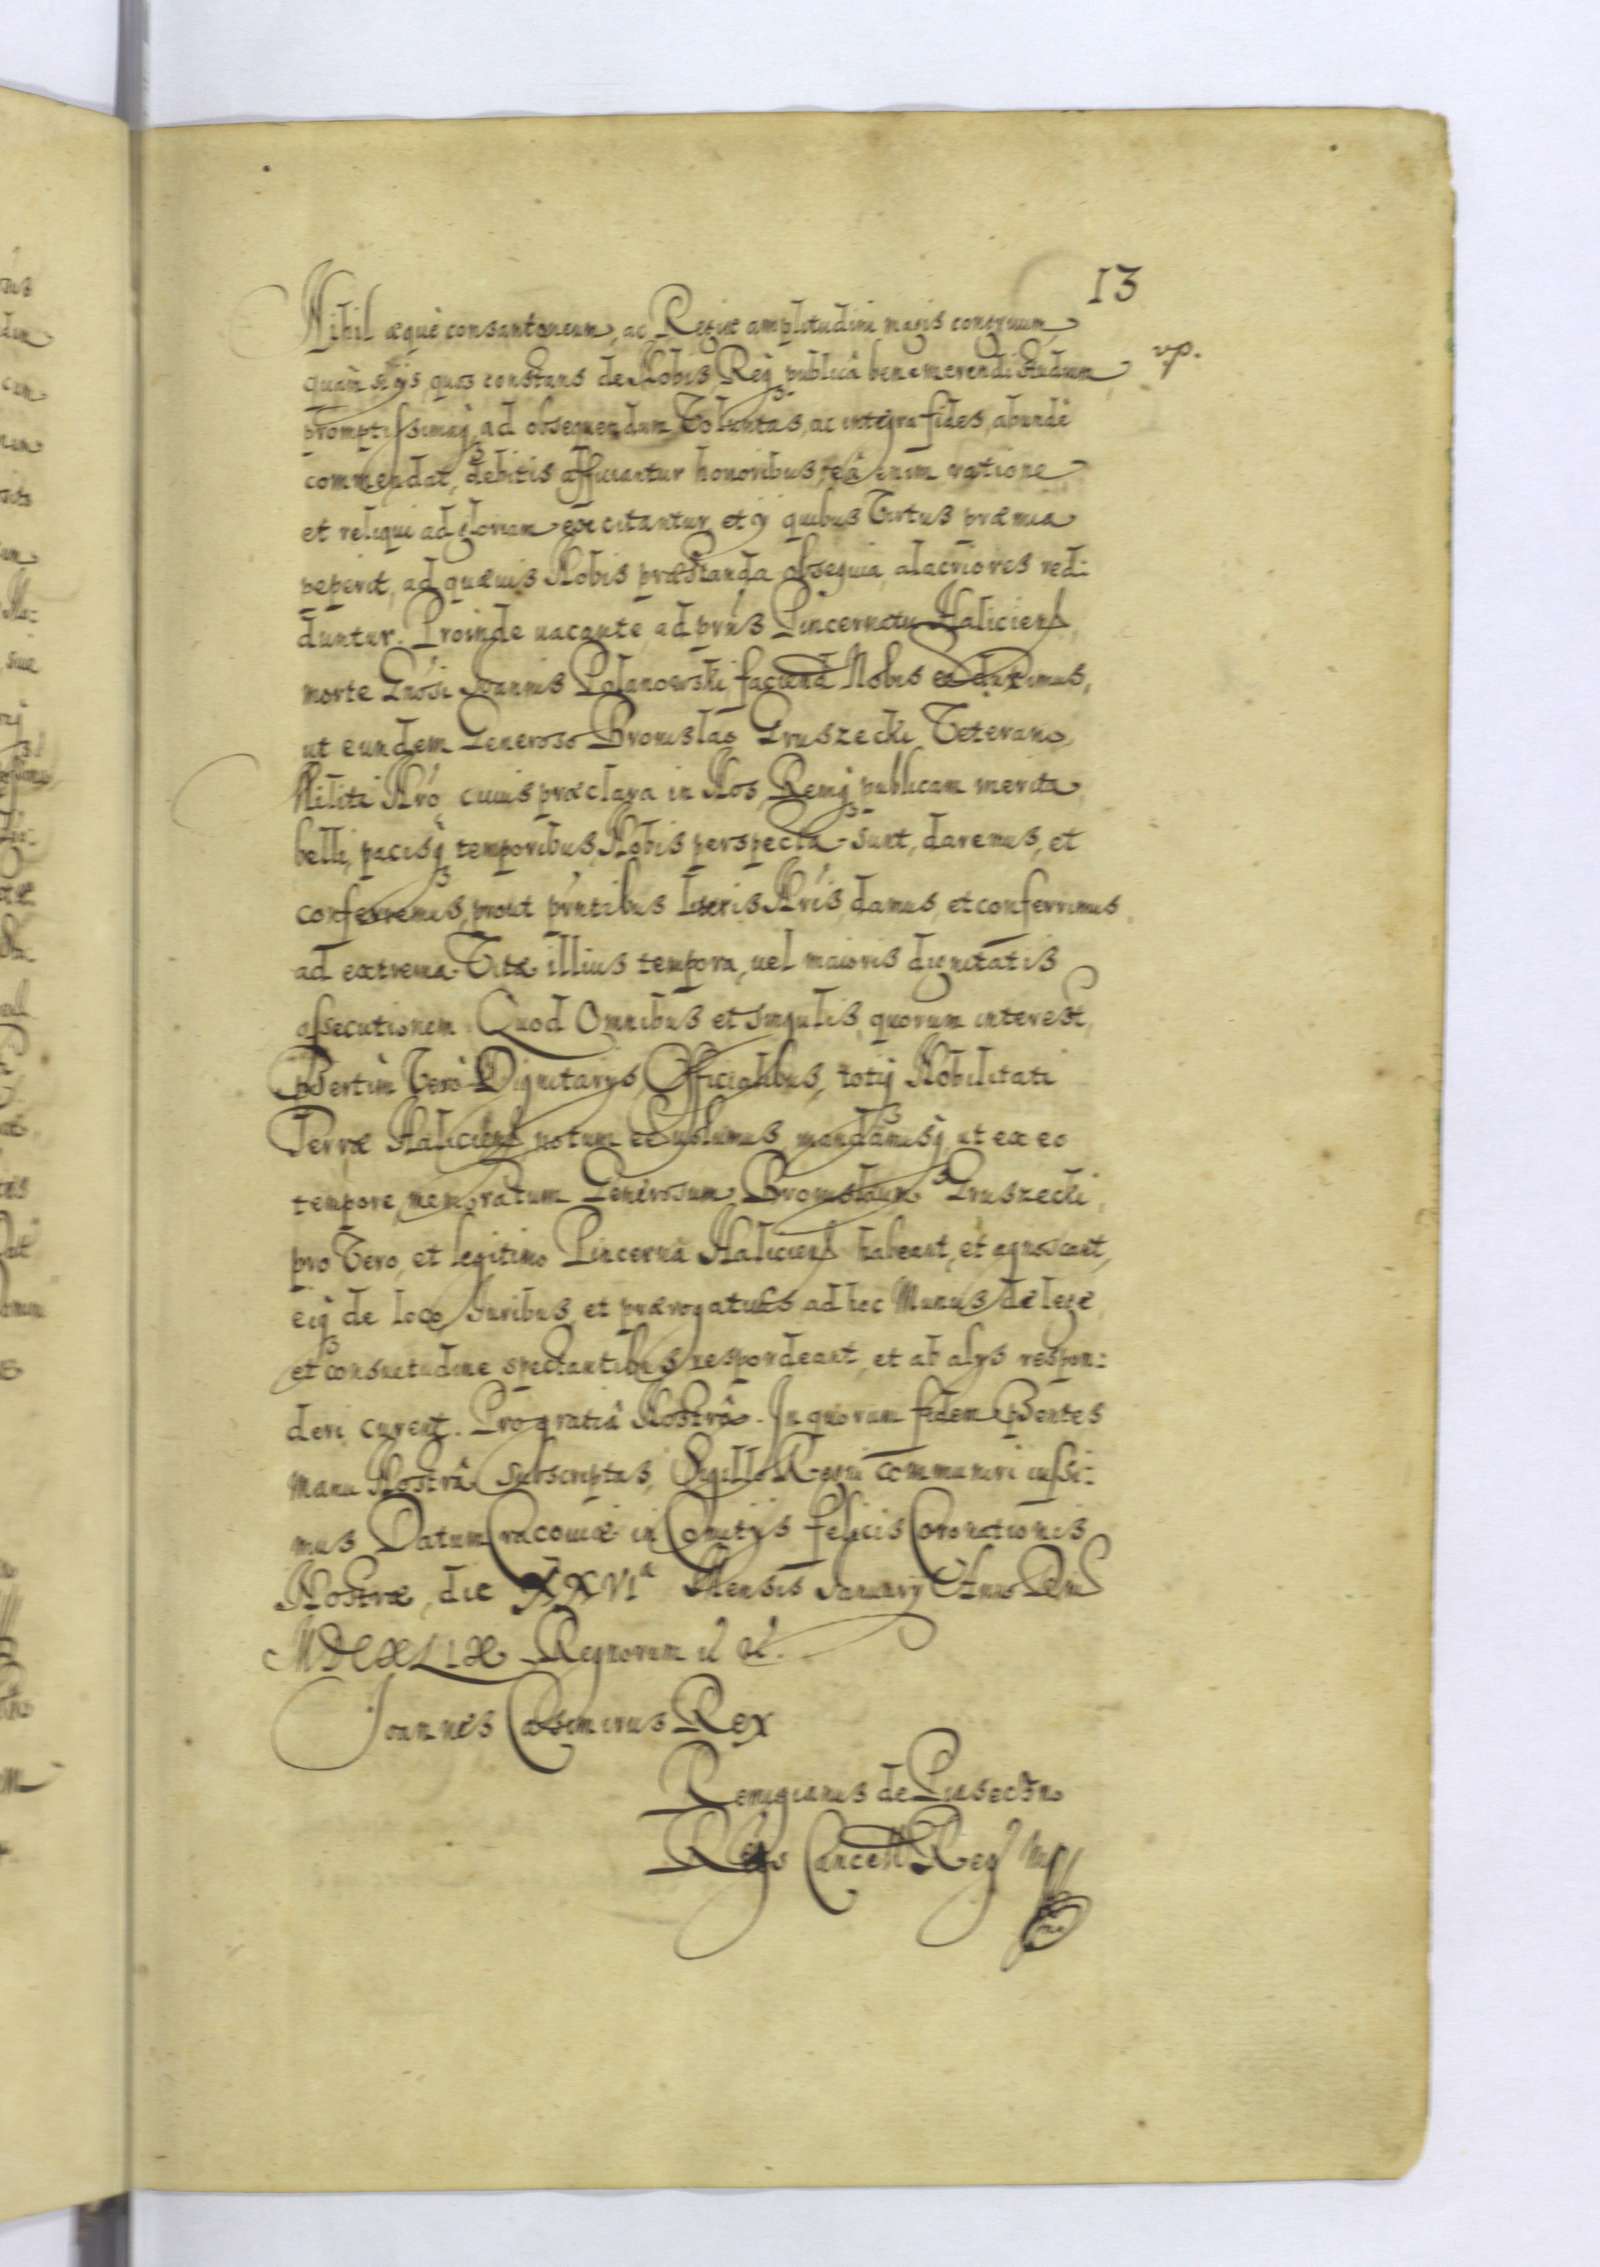 13
Nihil æquè consentaneum, ac Regiæ amplitudini magis congruum,
quàm si ijs, quos constans de Nobis, Reiq publica benemerendi studium, vp.
promptissimaq ad obsequendum Voluntas, ac integra fides, abunde
commendat, debitis afficiantur honoribus, eâ enim ratione
et reliqui ad gloriam excitantur, et ij quibus Virtus præmia
peperit, ad quæuis Nobis præstanda obsequia, alacriores red:
duntur. Proinde uacante ad prńs Pincernatu Haliciens
morte Gnósi Joannis Polanowski, faciend Nobis ee duximus,
ut eundem Generoso Bronislao Gruszecki, Veterano,
Militi Nró, cuius præclara in Nos, Remq publicam merita,
belli, pacisq temporibus, Nobis perspecta sunt, daremus, et
conferremus, prout pńntibus Lteris Nris, damus, et conferrimus
ad extrema Vitæ illius tempora, uel maioris dignitatis
assecutionem. Quod Omnibus et singulis, quorum interest,
psertim Verò Dignitarijs, Officialibus, totiq Nobilitati
Terræ Haliciens notum ee uolumus, mandamusq, ut ex eo
tempore, memoratum Generosum Bronislaum Gruszecki,
pro Vero, et legitimo Pincernâ Haliciens habeant, et agnoscant,
eiq de loco, Iuribus, et prærogatuis ad hoc Munus de lege,
et consuetudine spectantibus respondeant, et ab alijs respon:
deri curent. Pro gratiâ Nostrâ. In quorum fidem psentes
manu Nostrâ subscriptas, Sigillo Regni communiri iussi:
mus Datum Cracouiæ in Comitijs felicis Coronationis
Nostræ, die XXVIa Mensis January Anno Dni
MDCXLIX Regnorum
Joannes Casimirus Rex
Remigianus de Piaseczno
Rgńs Cancell Regni